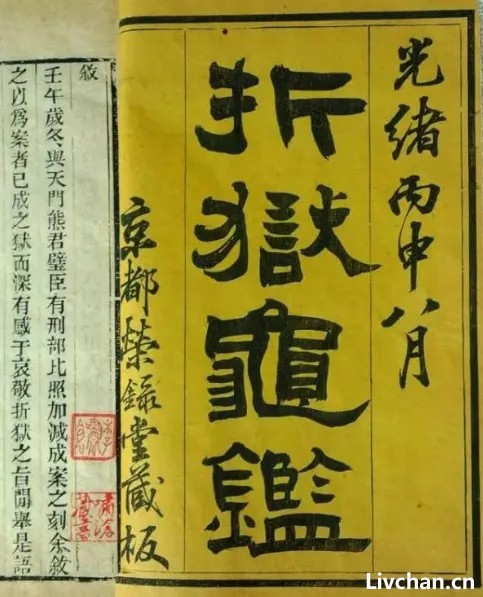 光緒丙申八月
折獄龜鑑
京都榮錄堂藏板
敘
壬午歲冬與天門熊君璧臣有刑部比照加減成案之刻余敘
之以爲案者已成之獄而深有感于哀敬折獄之旨閒舉是語
Livchan.cn